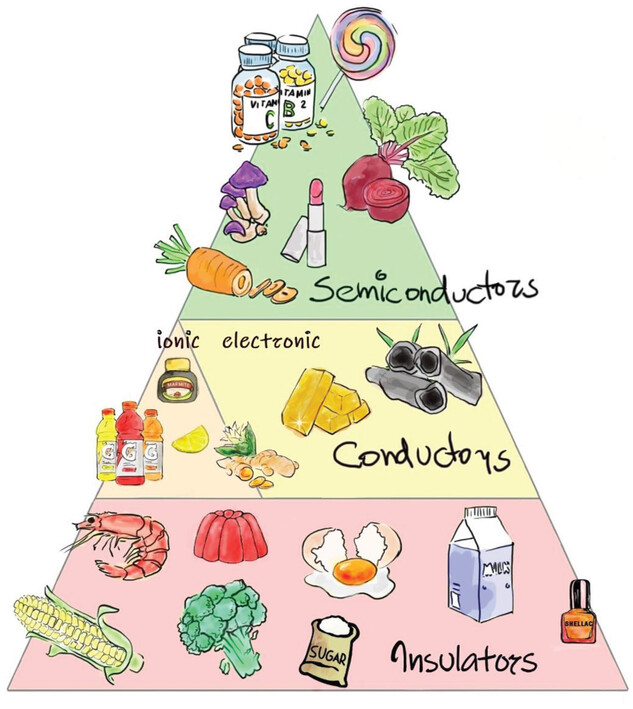 VITAMIN
C
VITAMIN
B 2
Semiconductors
ionic electronic
MARMITE
G G G
Conductors
MILK
SHELLAC
SUGAR
Insulators